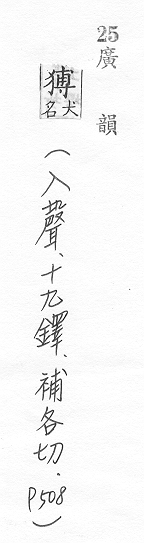 25廣韻
獔犬名
（入聲、十九鐸、補各切．P508）